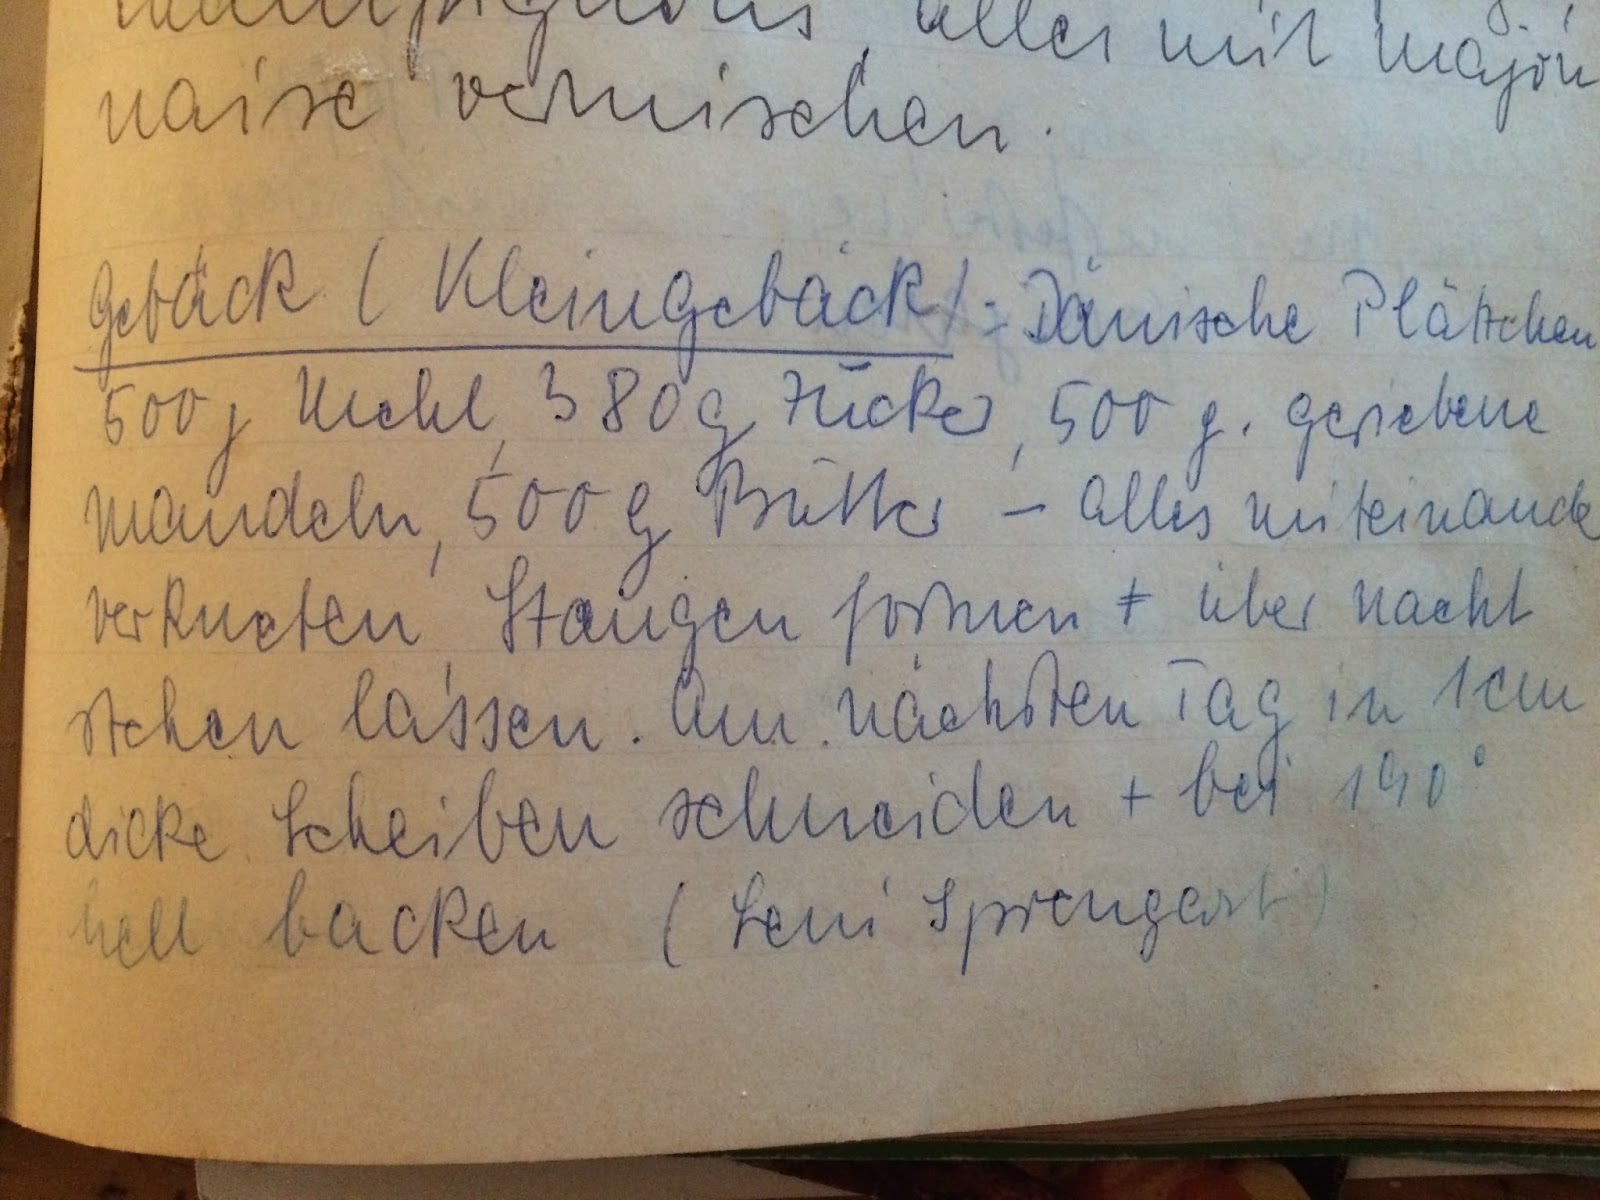 alles mit Majon
naise vermischen.
Gebäck (Kleingebäck) = Dänische Plättchen
500 g Mehl, 380 g Zucker, 500 g. geriebene
Mandeln, 500 g Butter – alles miteinande
verkneten, Stangen formen + über Nacht
stehen lassen. Am nächsten Tag in 1 cm
dicke Scheiben schneiden + bei 190°
hell backen (Leni Sprengart)